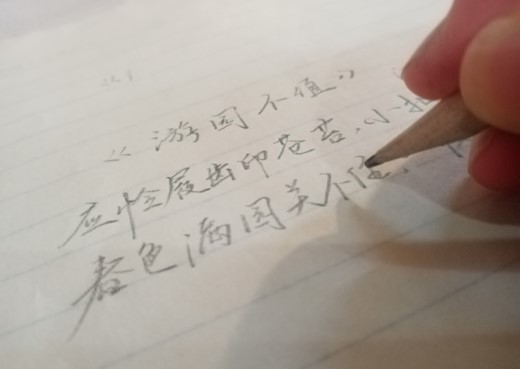 《游园不值》
应怜屐齿印苍苔,小扣
春色满园关不住,一